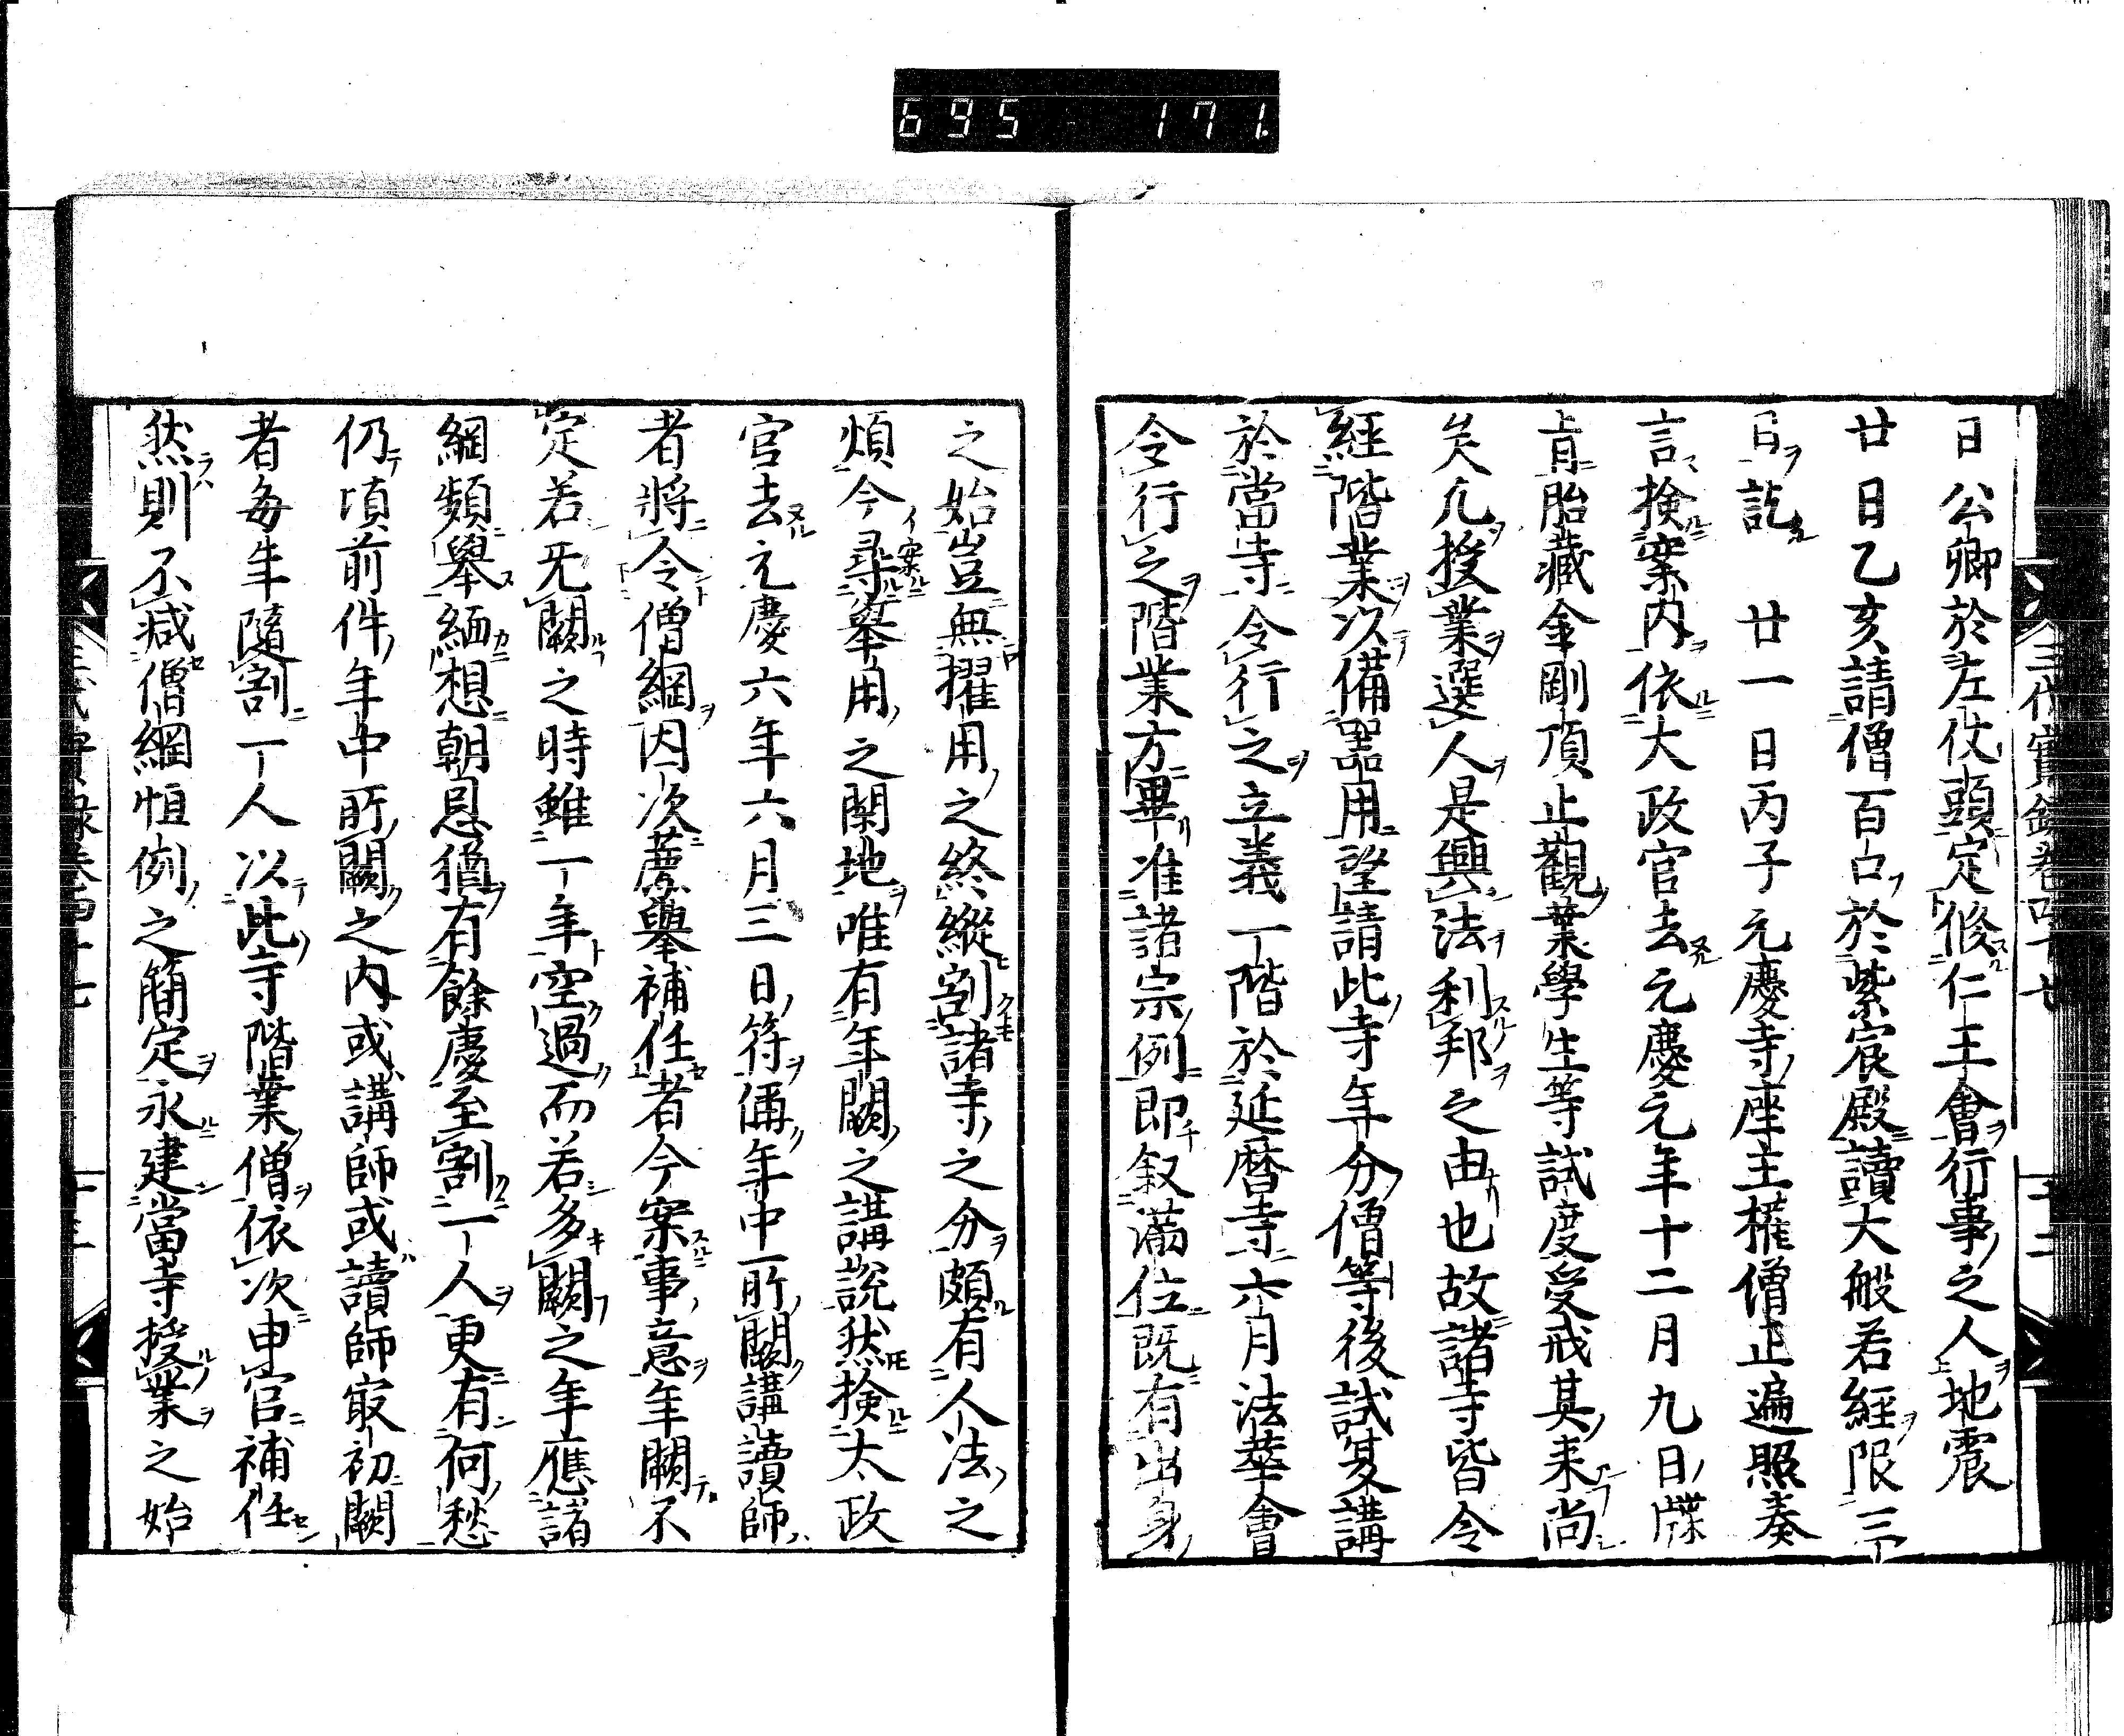 695 171.
三代實録卷四十七
十二
日公卿於左仗頭定修仁王會行事之人地震
廿日乙亥請僧百口於紫宸殿讀大般若經限三
日訖 廿一日丙子元慶寺座主權僧正遍照奏
言檢案内依大政官去元慶元年十二月九日牒
旨胎藏金剛頂止觀業學生等試度受戒其来尚
矣凡授業選人是興法利邦之由也故諸寺皆令
經階業以備器用望請此寺年分僧等後試复講
於當寺令行之立義一階於延暦寺六月法華會
令行之階業方畢准諸宗例即叙満位既有出身
之始豈無擢用之終縱割諸寺之分頗有人法之
煩今尋舉用之閑地唯有年闕之講説然檢太政
官去元慶六年六月三日符偁年中所闕講讀師
者將令僧綱因次薦舉補任者今案事意年闕不
定若旡闕之時雖一年空過而若多闕之年應諸
綱頻舉緬想朝恩猶有餘慶至割一人更有何愁
仍項前件年中所闕之内或講師或讀師㝡初闕
者毎年隨割一人以此寺階業僧依次申官補任
然則不减僧綱恒例之簡定永建當寺授業之始
三代實録卷四十七
十三